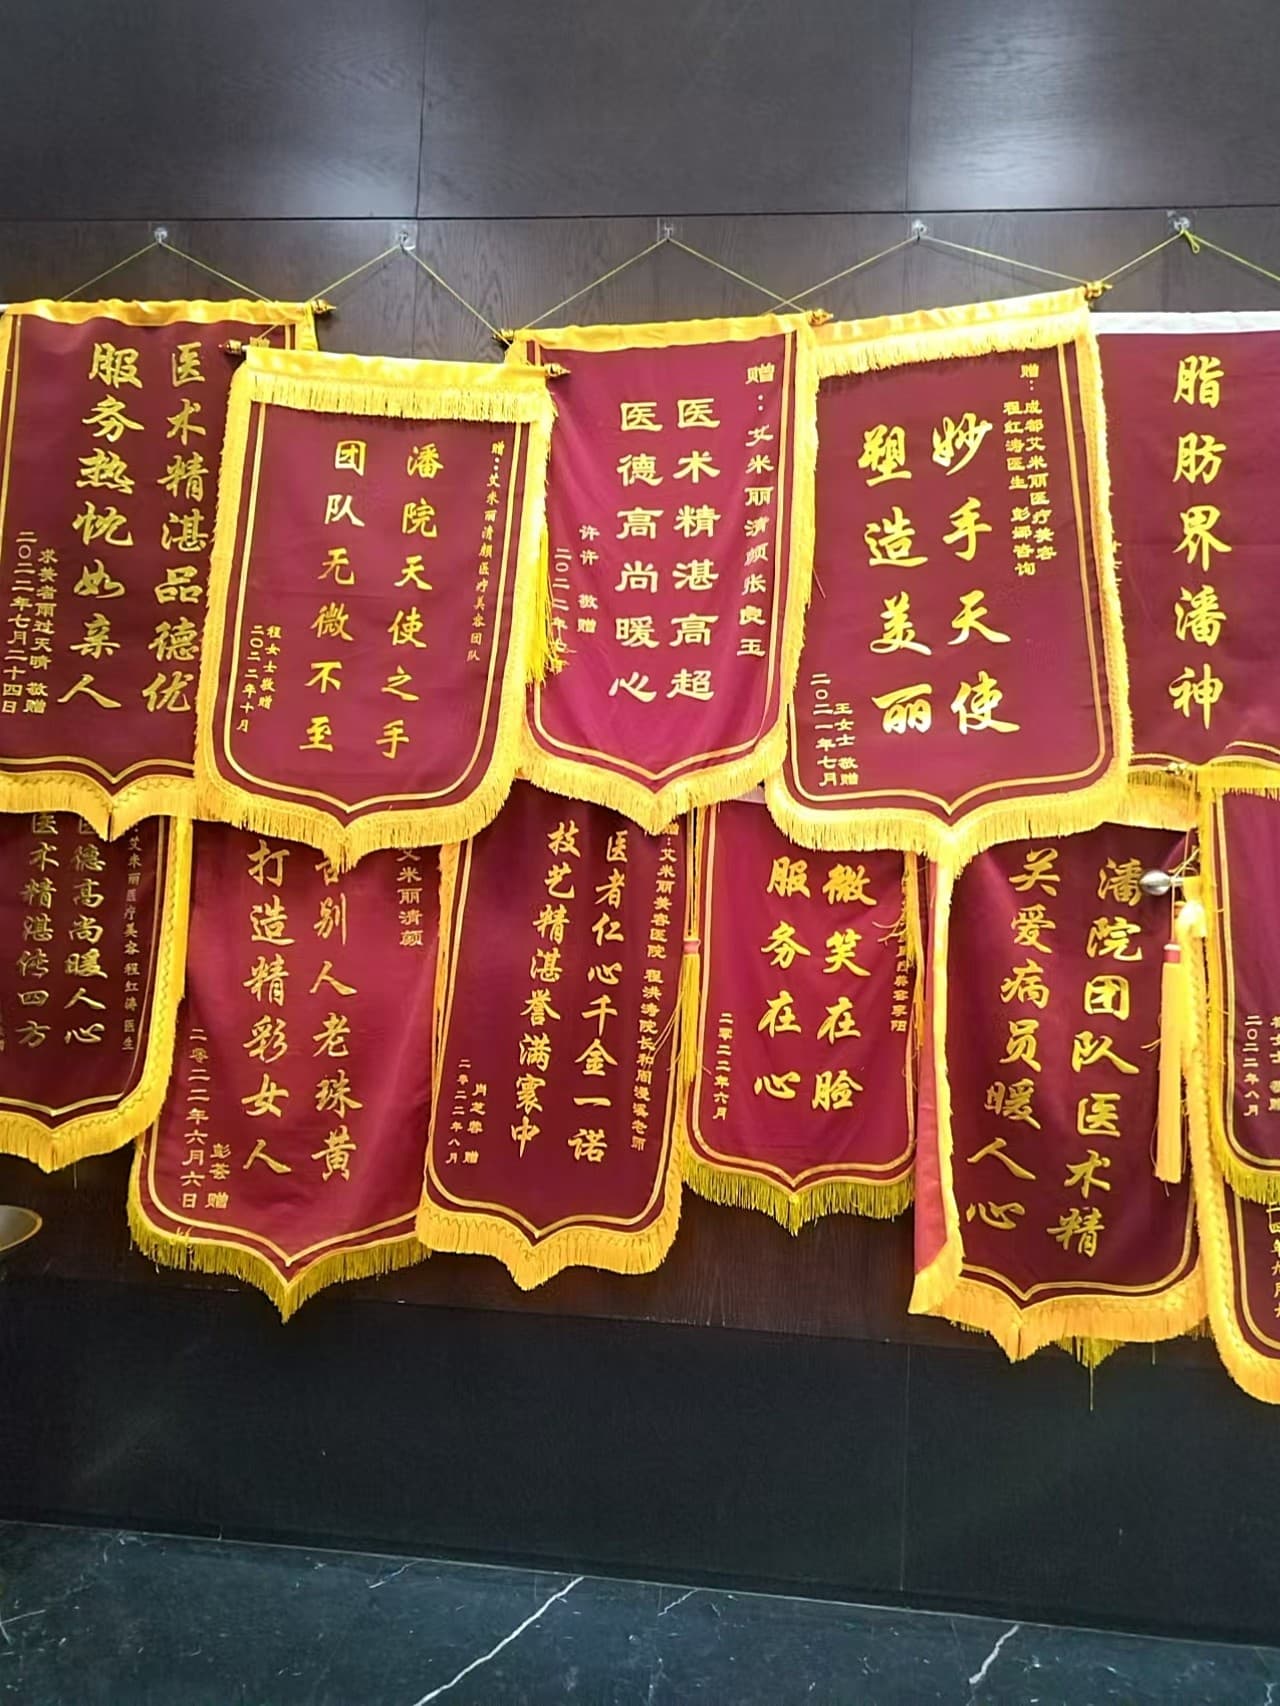 医术精湛品德优
服务热忱如亲人
求美者雨过天晴 敬赠
二〇二二年七月二十四日
赠：艾米丽清颜医疗美容团队
潘院天使之手
团队无微不至
程女士敬赠
二〇二二年十月
赠：艾米丽清颜张良玉
医术精湛高超
医德高尚暖心
许许 敬赠
二〇二二年
赠：成都艾米丽医疗美容
程红涛医生 彭娜咨询
妙手天使
塑造美丽
王女士 敬赠
二〇二一年七月
脂肪界潘神
艾米丽医疗美容 程红涛 医生
医德高尚暖人心
医术精湛传四方
艾米丽清颜
告别人老珠黄
打造精彩女人
彭荟 赠
二零二二年六月六日
赠：艾米丽美容医院 程洪涛院长和周漫溪老师
医者仁心千金一诺
技艺精湛誉满寰中
肖芝蓉 赠
二零二二年八月
微笑在脸
服务在心
二零二二年六月
潘院团队医术精
关爱病员暖人心
二〇二二年八月